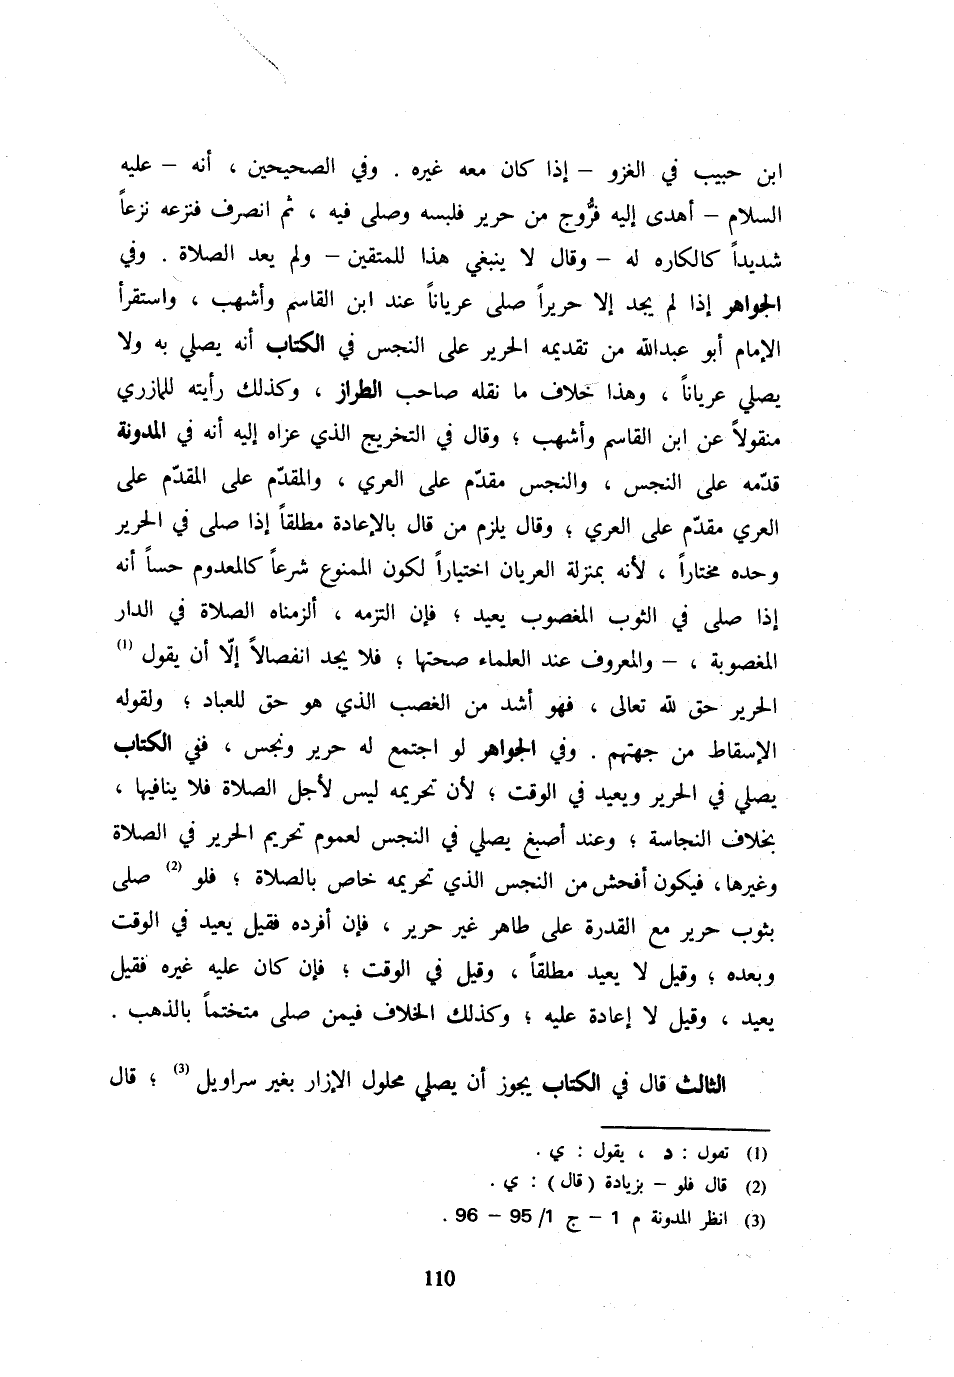 ابن حبيب في الغزو – إذا كان معه غيره . وفي الصحيحين ، أنه – عليه
السلام – أهدى إليه فرُّوج من حرير فلبسه وصلى فيه ، ثم انصرف فنزعه نزعاً
شديداً كالكاره له – وقال لا ينبغي هذا للمتقين – ولم يعد الصلاة . وفي
الجواهر إذا لم يجد إلا حريراً صلى عرياناً عند ابن القاسم وأشهب ، واستقرأ
الإمام أبو عبدالله من تقديمه الحرير على النجس في الكتاب أنه يصلي به ولا
يصلي عرياناً ، وهذا خلاف ما نقله صاحب الطراز ، وكذلك رأيته للمازري
منقولاً عن ابن القاسم وأشهب ؛ وقال في التخريج الذي عزاه إليه أنه في المدونة
قدّمه على النجس ، والنجس مقدّم على العري ، والمقدّم على المقدّم على
العري مقدّم على العري ؛ وقال يلزم من قال بالإعادة مطلقاً إذا صلى في الحرير
وحده مختاراً ، لأنه بمنزلة العريان اختياراً لكون الممنوع شرعاً كالمعدوم حساً أنه
إذا صلى في الثوب المغصوب يعيد ؛ فإن التزمه ، ألزمناه الصلاة في الدار
المغصوبة ، – والمعروف عند العلماء صحتها ؛ فلا يجد انفصالاً إلّا أن يقول (1)
الحرير حق لله تعالى ، فهو أشد من الغصب الذي هو حق للعباد ؛ ولقوله
الإسقاط من جهتهم . وفي الجواهر لو اجتمع له حرير ونجس ، ففي الكتاب
يصلي في الحرير ويعيد في الوقت ؛ لأن تحريمه ليس لأجل الصلاة فلا ينافيها ،
بخلاف النجاسة ؛ وعند أصبغ يصلي في النجس لعموم تحريم الحرير في الصلاة
وغيرها ، فيكون أفحش من النجس الذي تحريمه خاص بالصلاة ؛ فلو (2) صلى
بثوب حرير مع القدرة على طاهر غير حرير ، فإن أفرده فقيل يعيد في الوقت
وبعده ؛ وقيل لا يعيد مطلقاً ، وقيل في الوقت ؛ فإن كان عليه غيره فقيل
يعيد ، وقيل لا إعادة عليه ؛ وكذلك الخلاف فيمن صلى متختماً بالذهب .
الثالث قال في الكتاب يجوز أن يصلي محلول الإزار بغير سراويل (3) ؛ قال
(1) تقول : د ، يقول : ي .
(2) قال فلو – بزيادة ( قال ) : ي .
(3) انظر المدونة م 1 – ج 1/ 95 – 96 .
110